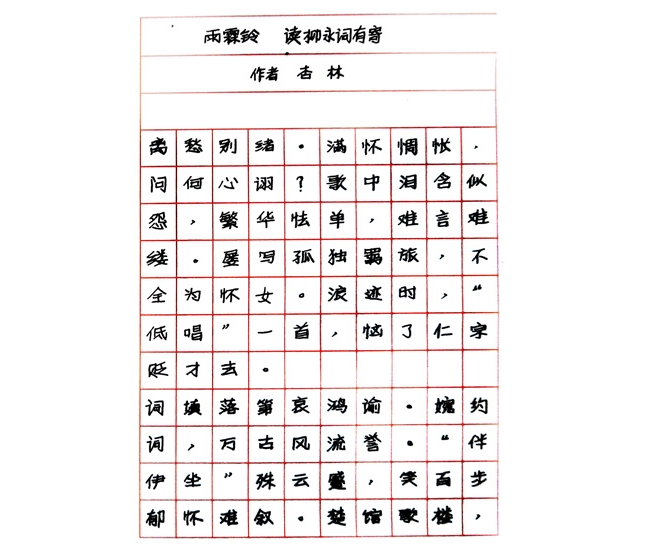 雨霖铃 读柳永词有寄
作者 杏林
离愁别绪。满怀惆怅,
问何心诩?歌中泪含似
怨,繁华怯单,难言难
缕。屡写孤独羁旅,不
全为怀女。浪迹时,“
低唱”一首,恼了仁字
贬才去。
词填落第哀鸿谕。婉约
词,万古风流誉。“伴
伊坐”殊云盛,笑百步
郁怀难叙。楚馆歌楼,